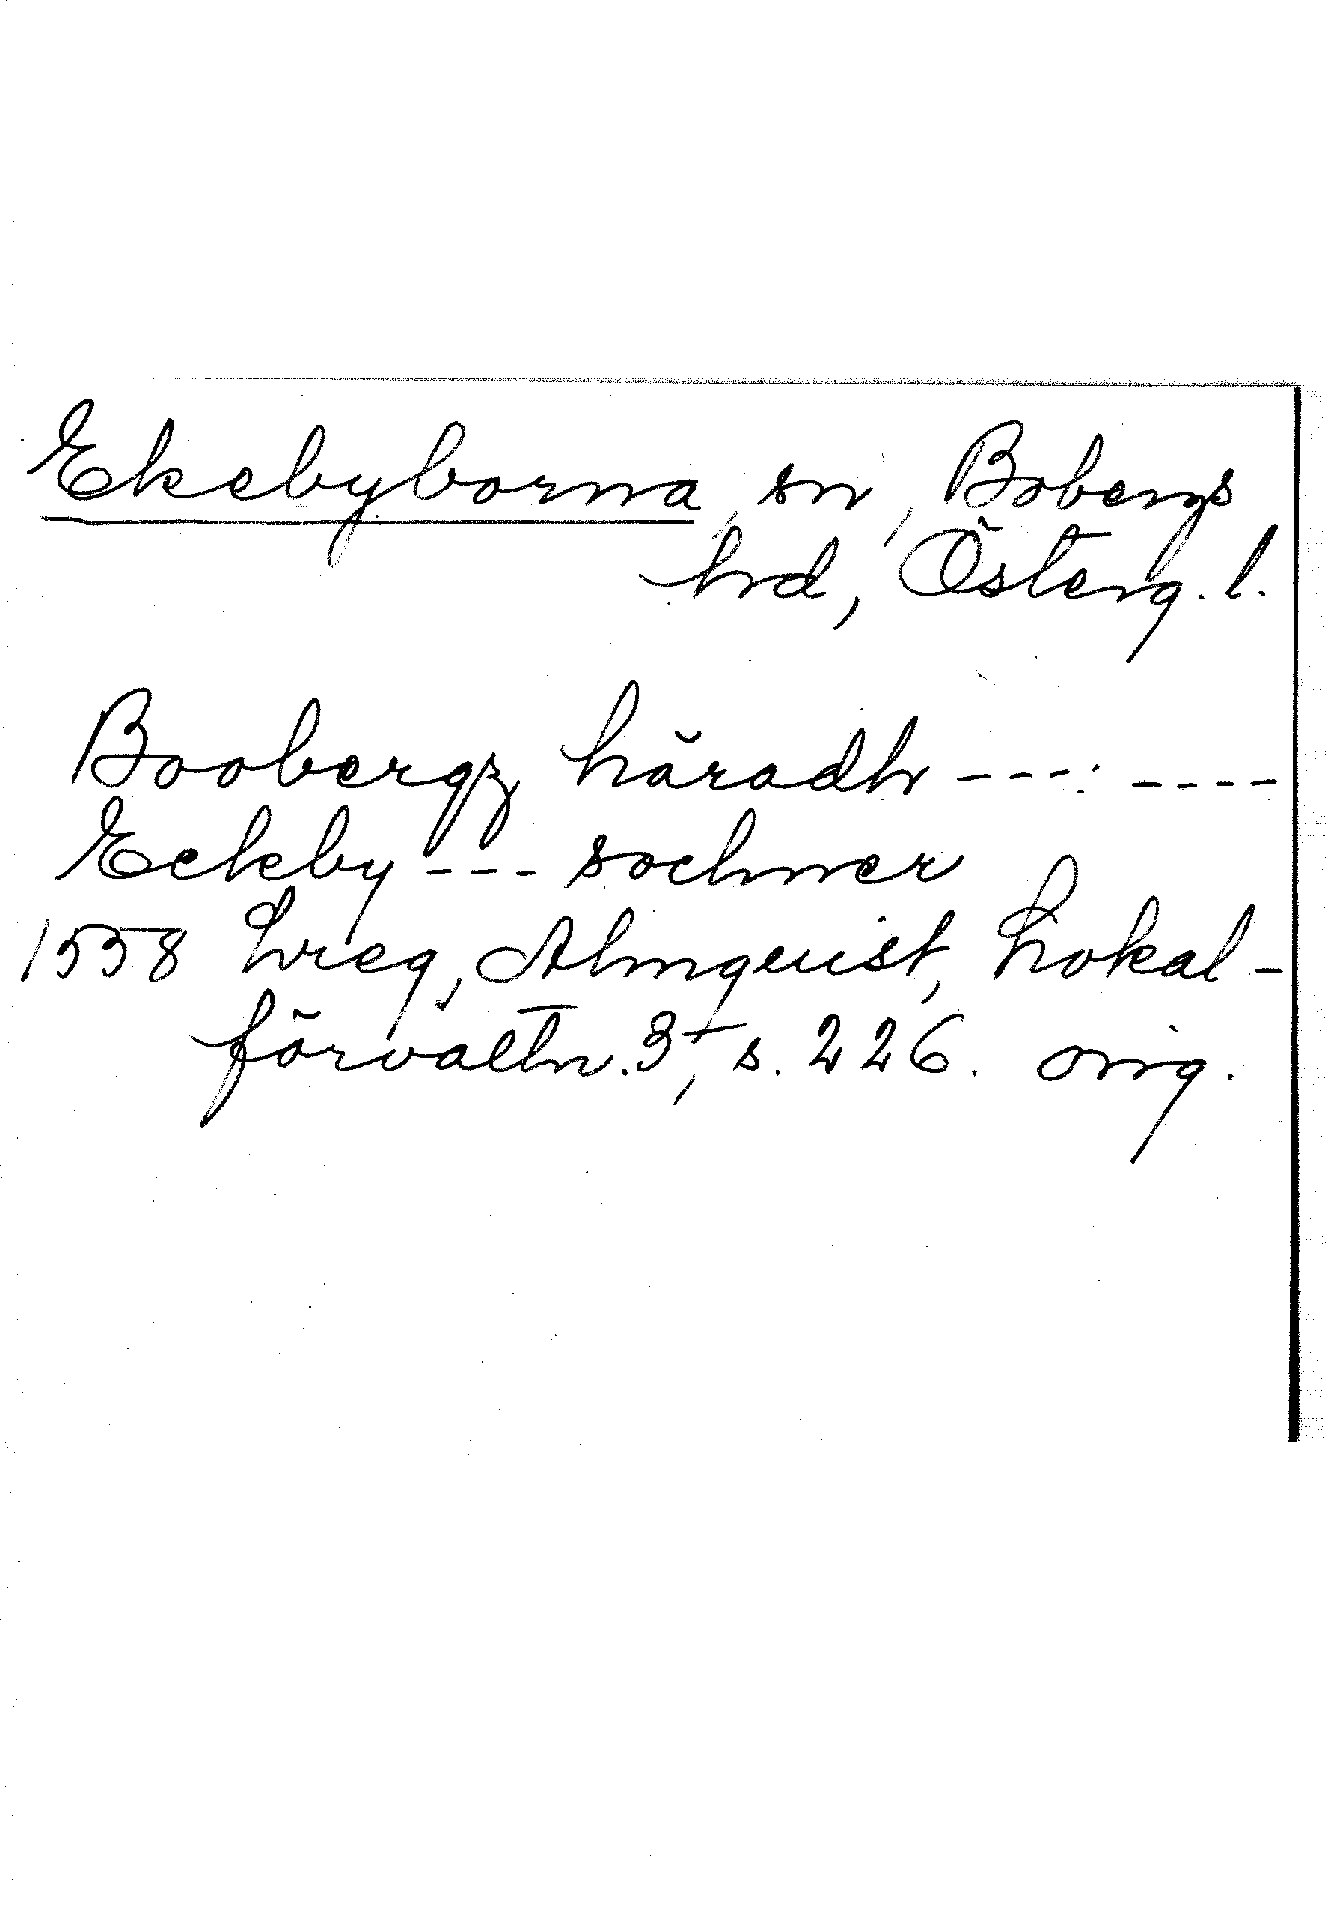 Ekebyborna, sn, Bobergs
hrd, Österg. l.
Boobergz häradh ---: ----
Eckby --- sochner
1558 Lreg, Almquist, Lokal-
förvaltn. 3, s. 226. orig.